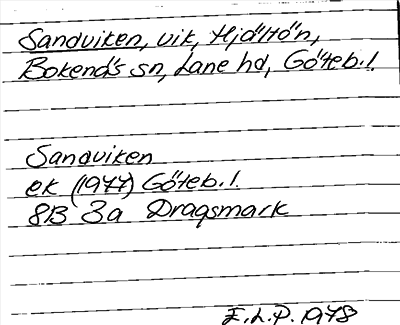 Sandviken, vik, Hjältön,
Bokenäs sn, Lane hd, Göteb. l.
Sandviken
ek (1977) Göteb. l.
8B 3a Dragsmark
E.L.P. 1978